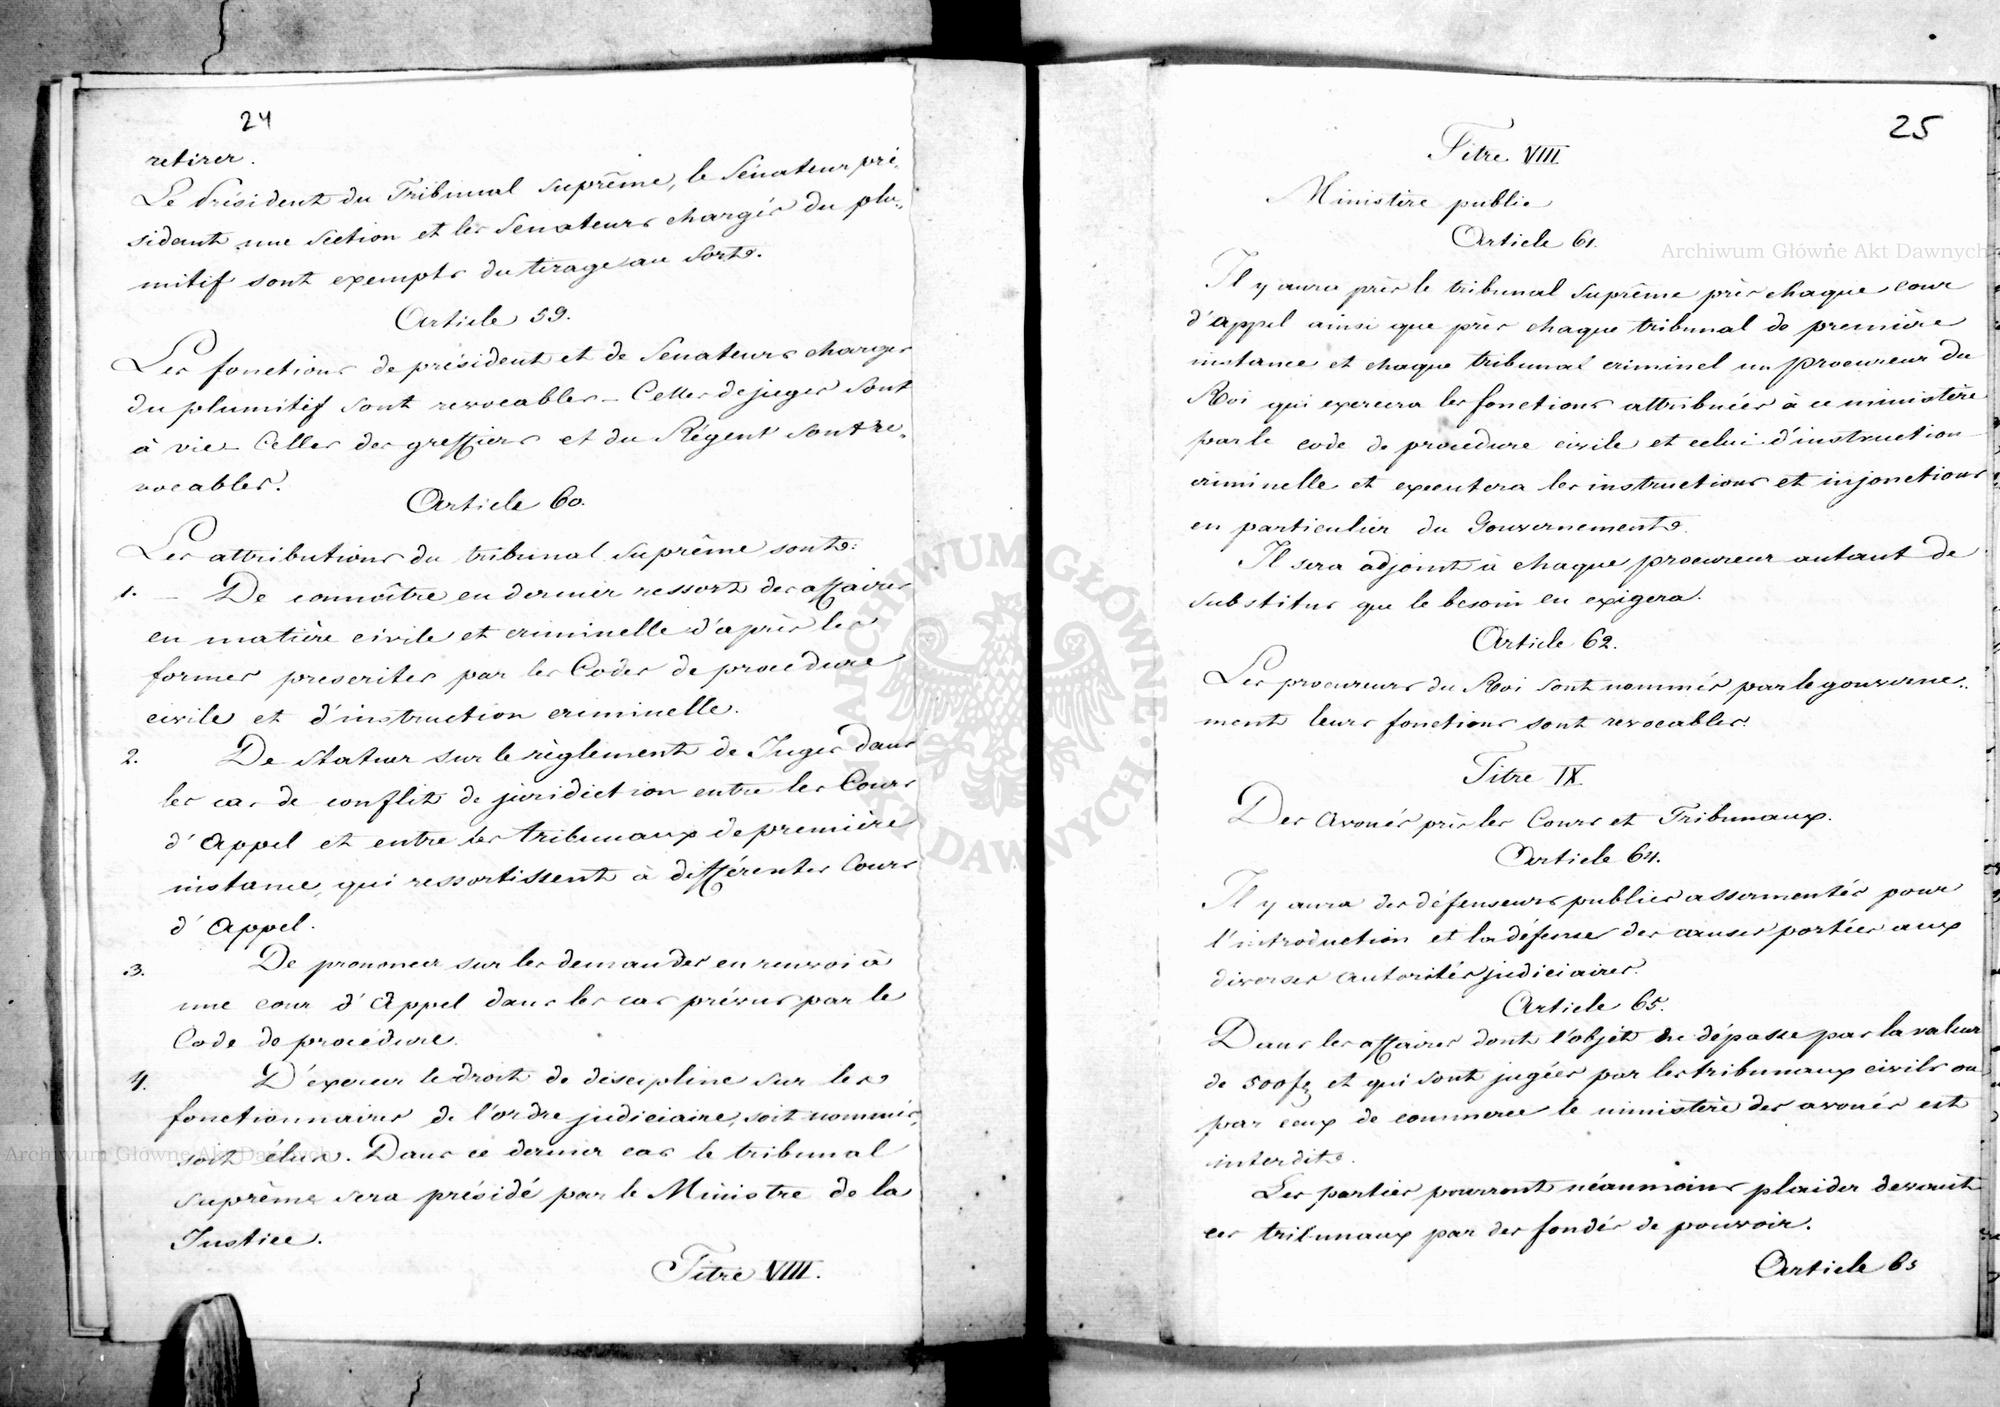 24
retirer.
Le Président du Tribunal Suprême, le Sénateur pré-
sidant une Section et les Senateurs chargés du plu-
mitif sont exempts du tirage au Sort.
Article 59.
Les fonctions de président et de Senateurs charges
du plumitif sont revocables – Celles de juges sont
à vie – Celles des greffiers et du Régent sont re-
vocables.
Article 60.
Les attributions du tribunal Suprême sont:
1. – De connoître en dernier ressort des affaires
en matière civile et criminelle d'après les
formes prescrites par les Codes de procédure
civile et d'instruction criminelle.
2. De Statuer sur le règlement de Juges dans
les cas de conflit de juridiction entre les Cours
d'Appel et entre les tribunaux de première
instance, qui ressortissent à différentes Cours
d'Appel.
3. De prononcer sur les demandes en renvoi à
une cour d'Appel dans les cas prévus par le
Code de procédure.
4. D'exercer le droit de discipline sur les
fonctionnaires de l'ordre judiciaire, soit nommés,
soit élus. Dans ce dernier cas le tribunal
Suprême sera présidé par le Ministre de la
Justice.
Titre VIII.
25
Titre VIII
Ministère public
Article 61.
Il y aura près le tribunal Suprême près chaque cour
d'appel ainsi que près chaque tribunal de première
instance et chaque tribunal criminel un procureur du
Roi qui exercera les fonctions attribuées à ce ministère
par le code de procédure civile et celui d'instruction
criminelle et executera les instructions et injonctions
en particulier du Gouvernement.
Il sera adjoint à chaque procureur autant de
substitus que le besoin en exigera.
Article 62.
Les procureurs du Roi sont nommés par le gouverne-
ment leurs fonctions sont revocables.
Titre IX
Des Avoués près les Cours et Tribunaux.
Article 64.
Il y aura des défenseurs publics assermentés pour
l'introduction et la défense des causes portées aux
diverses autorités judiciaires.
Article 65.
Dans les affaires dont l'objet ne dépasse pas la valeur
de 500 f et qui sont jugées par les tribunaux civils ou
par ceux de commerce le ministère des avoués est
interdit.
Les parties pourront néanmoins plaider devant
ces tribunaux par des fondés de pouvoir.
Article 65
Archiwum Główne Akt Dawnych
Archiwum Główne Akt Dawnych
ARCHIWUM GŁÓWNE AKT DAWNYCH